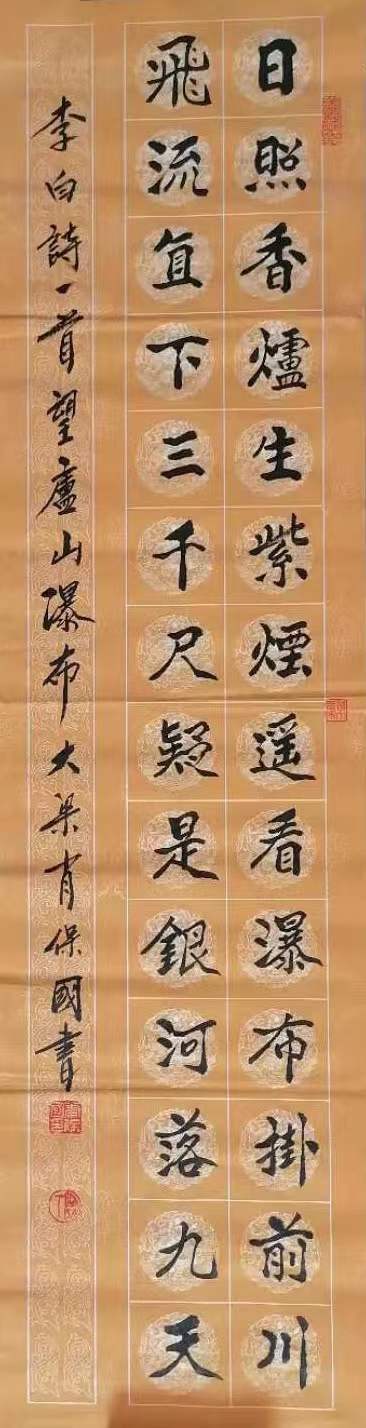 日照香爐生紫煙遥看瀑布掛前川
飛流直下三千尺疑是銀河落九天
李白詩一首望廬山瀑布大梁肖保國書